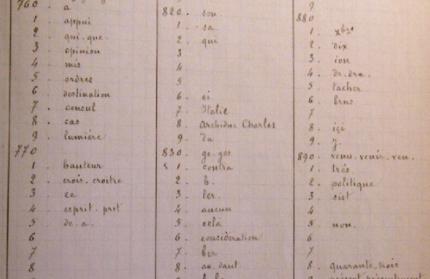 760 . a
1 . appui
2 . qui . que .
3 . opinion
4 . mis
5 . ordres
6 . destination
7 . consul
8 . cas
9 . lumière
770
1 . hauteur
2 . crois . croitre
3 . ea
4 . esprit . pret
5 . de . a .
6
7
8
820 . son
1 . sa
2 . qui
3
4
5
6 . si
7 . Italie
8 . Archiduc Charles
9 . La
830 . ge . ges
1 . contra
2 . b .
3 . ler .
4 . aucun
5 . cela
6 . considération
7 . ber
8 . au . daut
9
880
1 .
2 . dix
3 . ion
4 . de . dra .
5 . tacher
6 . bras
7
8 . ici
9 . y .
890 . venu . venir . ven .
1 . très
2 . politique
3 . siet
4
5 . non .
6
7
8 . quarante . trois